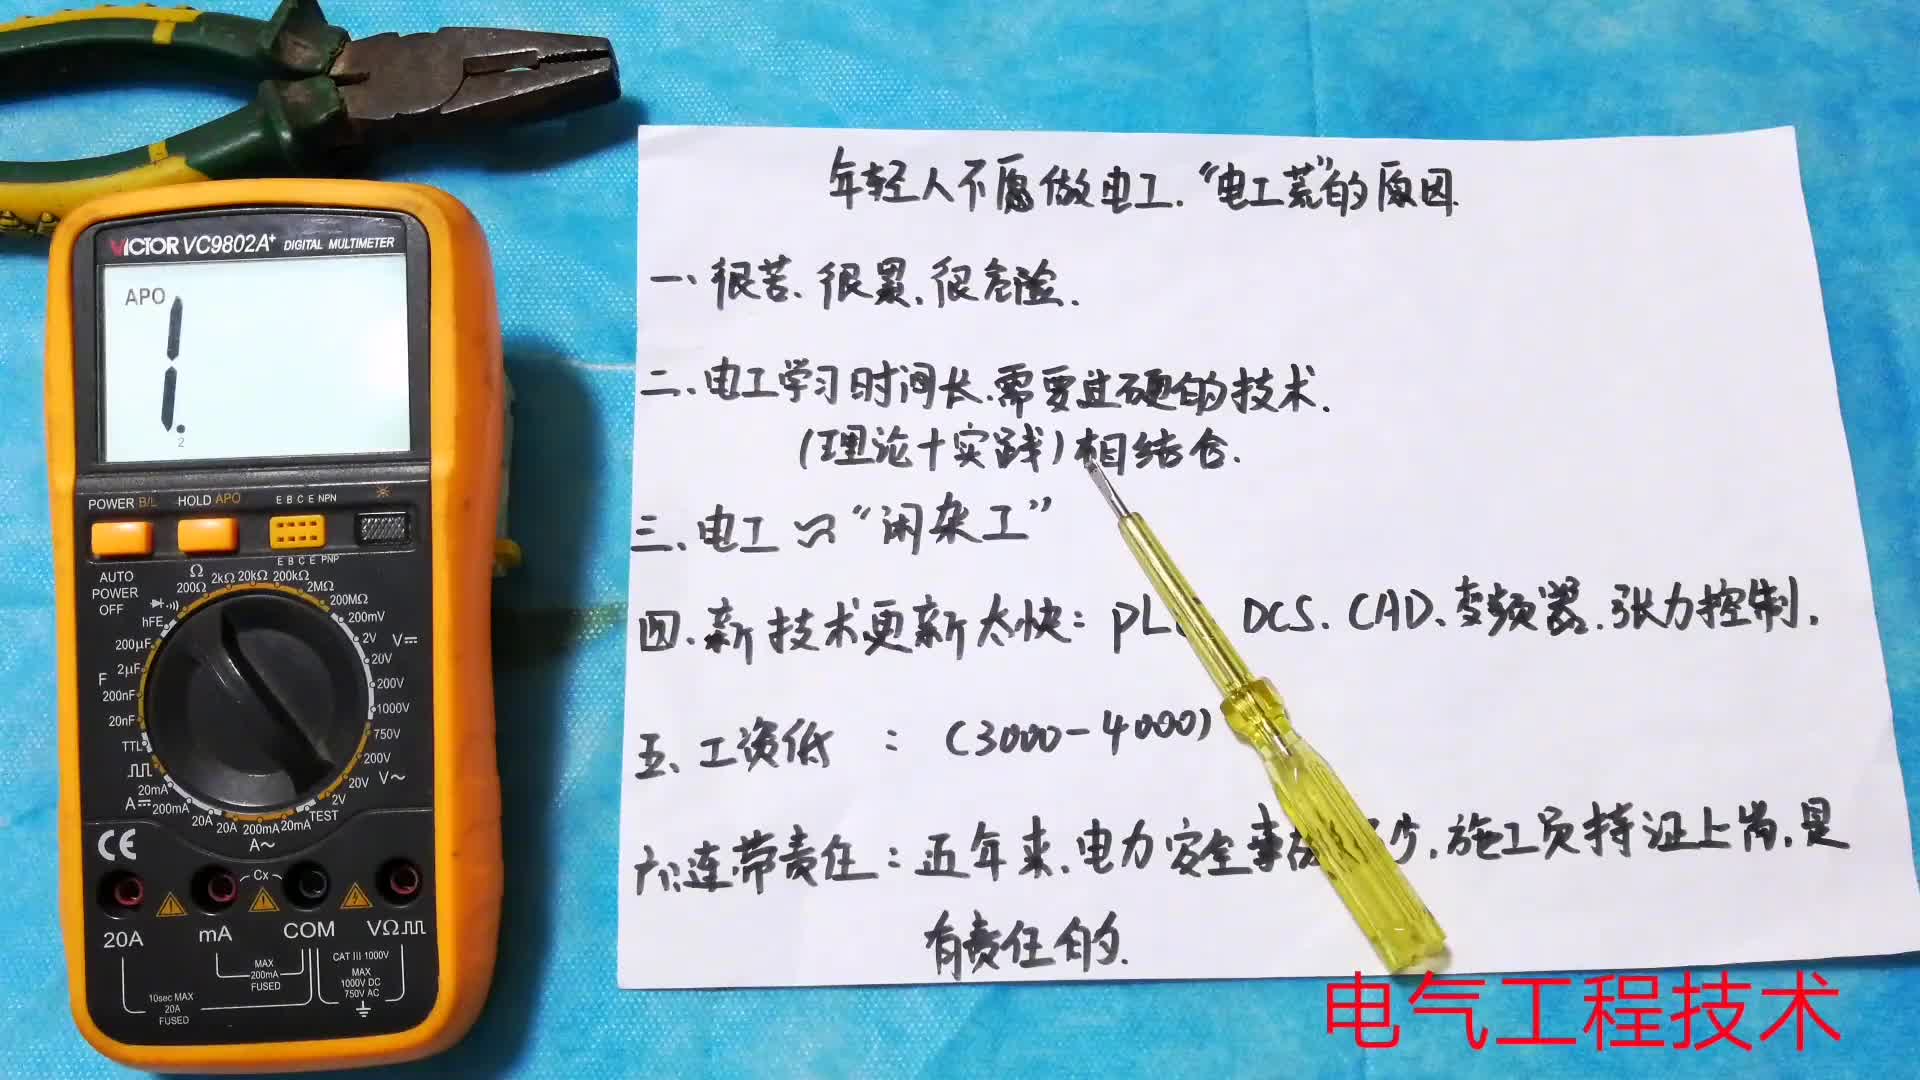 VICTOR VC9802A+ DIGITAL MULTIMETER
APO
1.
2
POWER B/L HOLD APO E B C E NPN
E B C E PNP
AUTO
POWER
OFF
Ω
200Ω 2kΩ 20kΩ 200kΩ 2MΩ 200MΩ
hFE
200mV
2V V
20V
200V
1000V
750V
200V V~
20V
2V
TEST
200μF
2μF
F
200nF
20nF
TTL
20mA
A 200mA
20A 20A 200mA 20mA
A~
CE
Cx
20A mA COM VΩ
CAT III 1000V
MAX
200mA
FUSED
MAX
1000V DC
750V AC
10sec MAX
20A
FUSED
年轻人不愿做电工.“电工荒”的原因.
一、很苦、很累、很危险.
二、电工学习时间长、需要过硬的技术.
(理论+实践)相结合.
三、电工 ∽“闲杂工”
四、新技术更新太快: PL DCS、CAD、变频器、张力控制.
五、工资低 : (3000-4000)
六、连带责任:五年来、电力安全事故 少,施工员持证上岗,是
有责任的.
电气工程技术